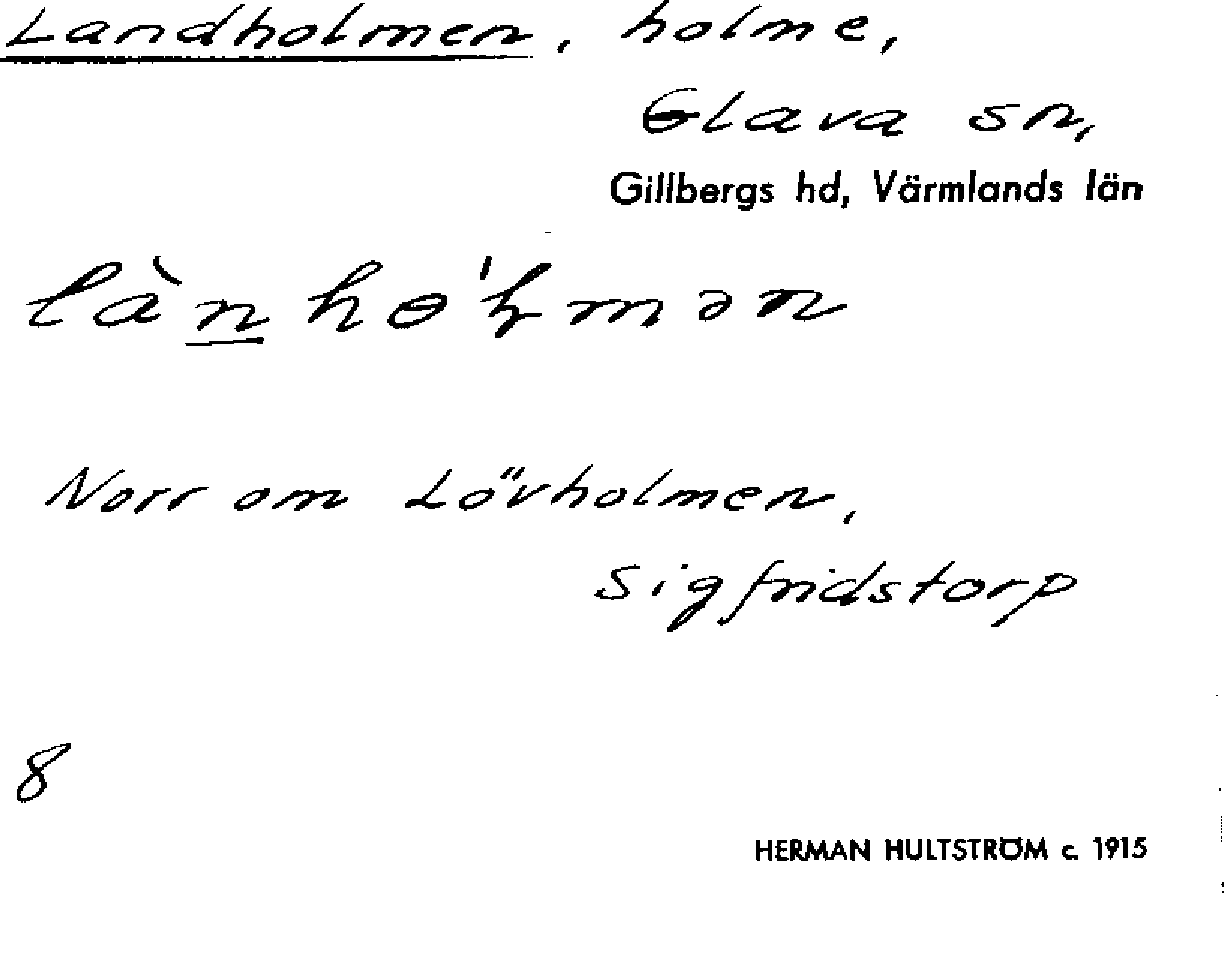 Landholmen, holme,
Glava sn,
Gillbergs hd, Värmlands län
là̱nhɵ'ɫmən
Norr om Lövholmen,
Sigfridstorp
8
HERMAN HULTSTRÖM c. 1915